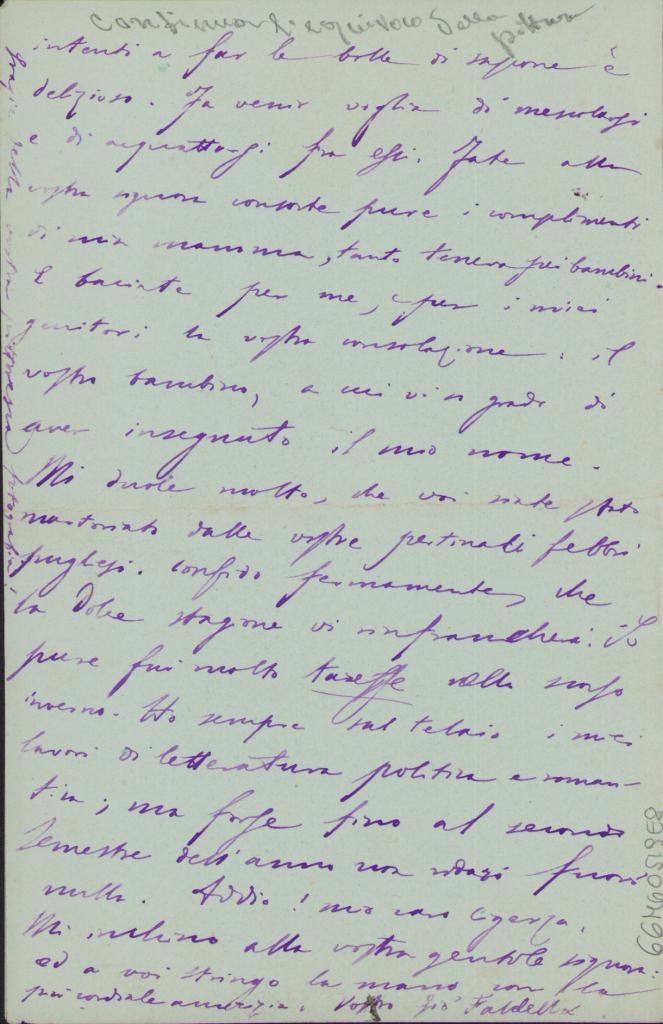 intenti a far le bolle di sapone è
delizioso. Fa venir voglia di mescolarsi
e di acquattarsi fra essi. Fate alla
vostra signora consorte pure i complimenti
di mia mamma, tanto tenera pei bambini.
E baciate per me, e per i miei
genitori la vostra consolazione: il
vostro bambino, a cui vi so grado di
aver insegnato il mio nome.
Mi duole molto, che voi siate stato
martoriato dalle vostre pertinaci febbri
pugliesi. Confido fermamente, che
la dolce stagione vi rinfrancherà. Io
pure fui molto nello scorso
inverno. Ho sempre sul telaio i miei
lavori di letteratura politica e roman-
tica; ma forse fino al secondo
semestre dell'anno non uscirà fuori
nulla. Addio! mio caro
Mi inchino alla vostra gentile signora:
ed a voi stringo la mano con la
più cordiale amicizia. Vostro Faldella
Grazie della vostra fotografia!
della pittura